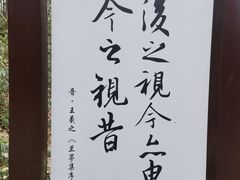 後之視今亦由
今之視昔
晋·王羲之《兰亭集序